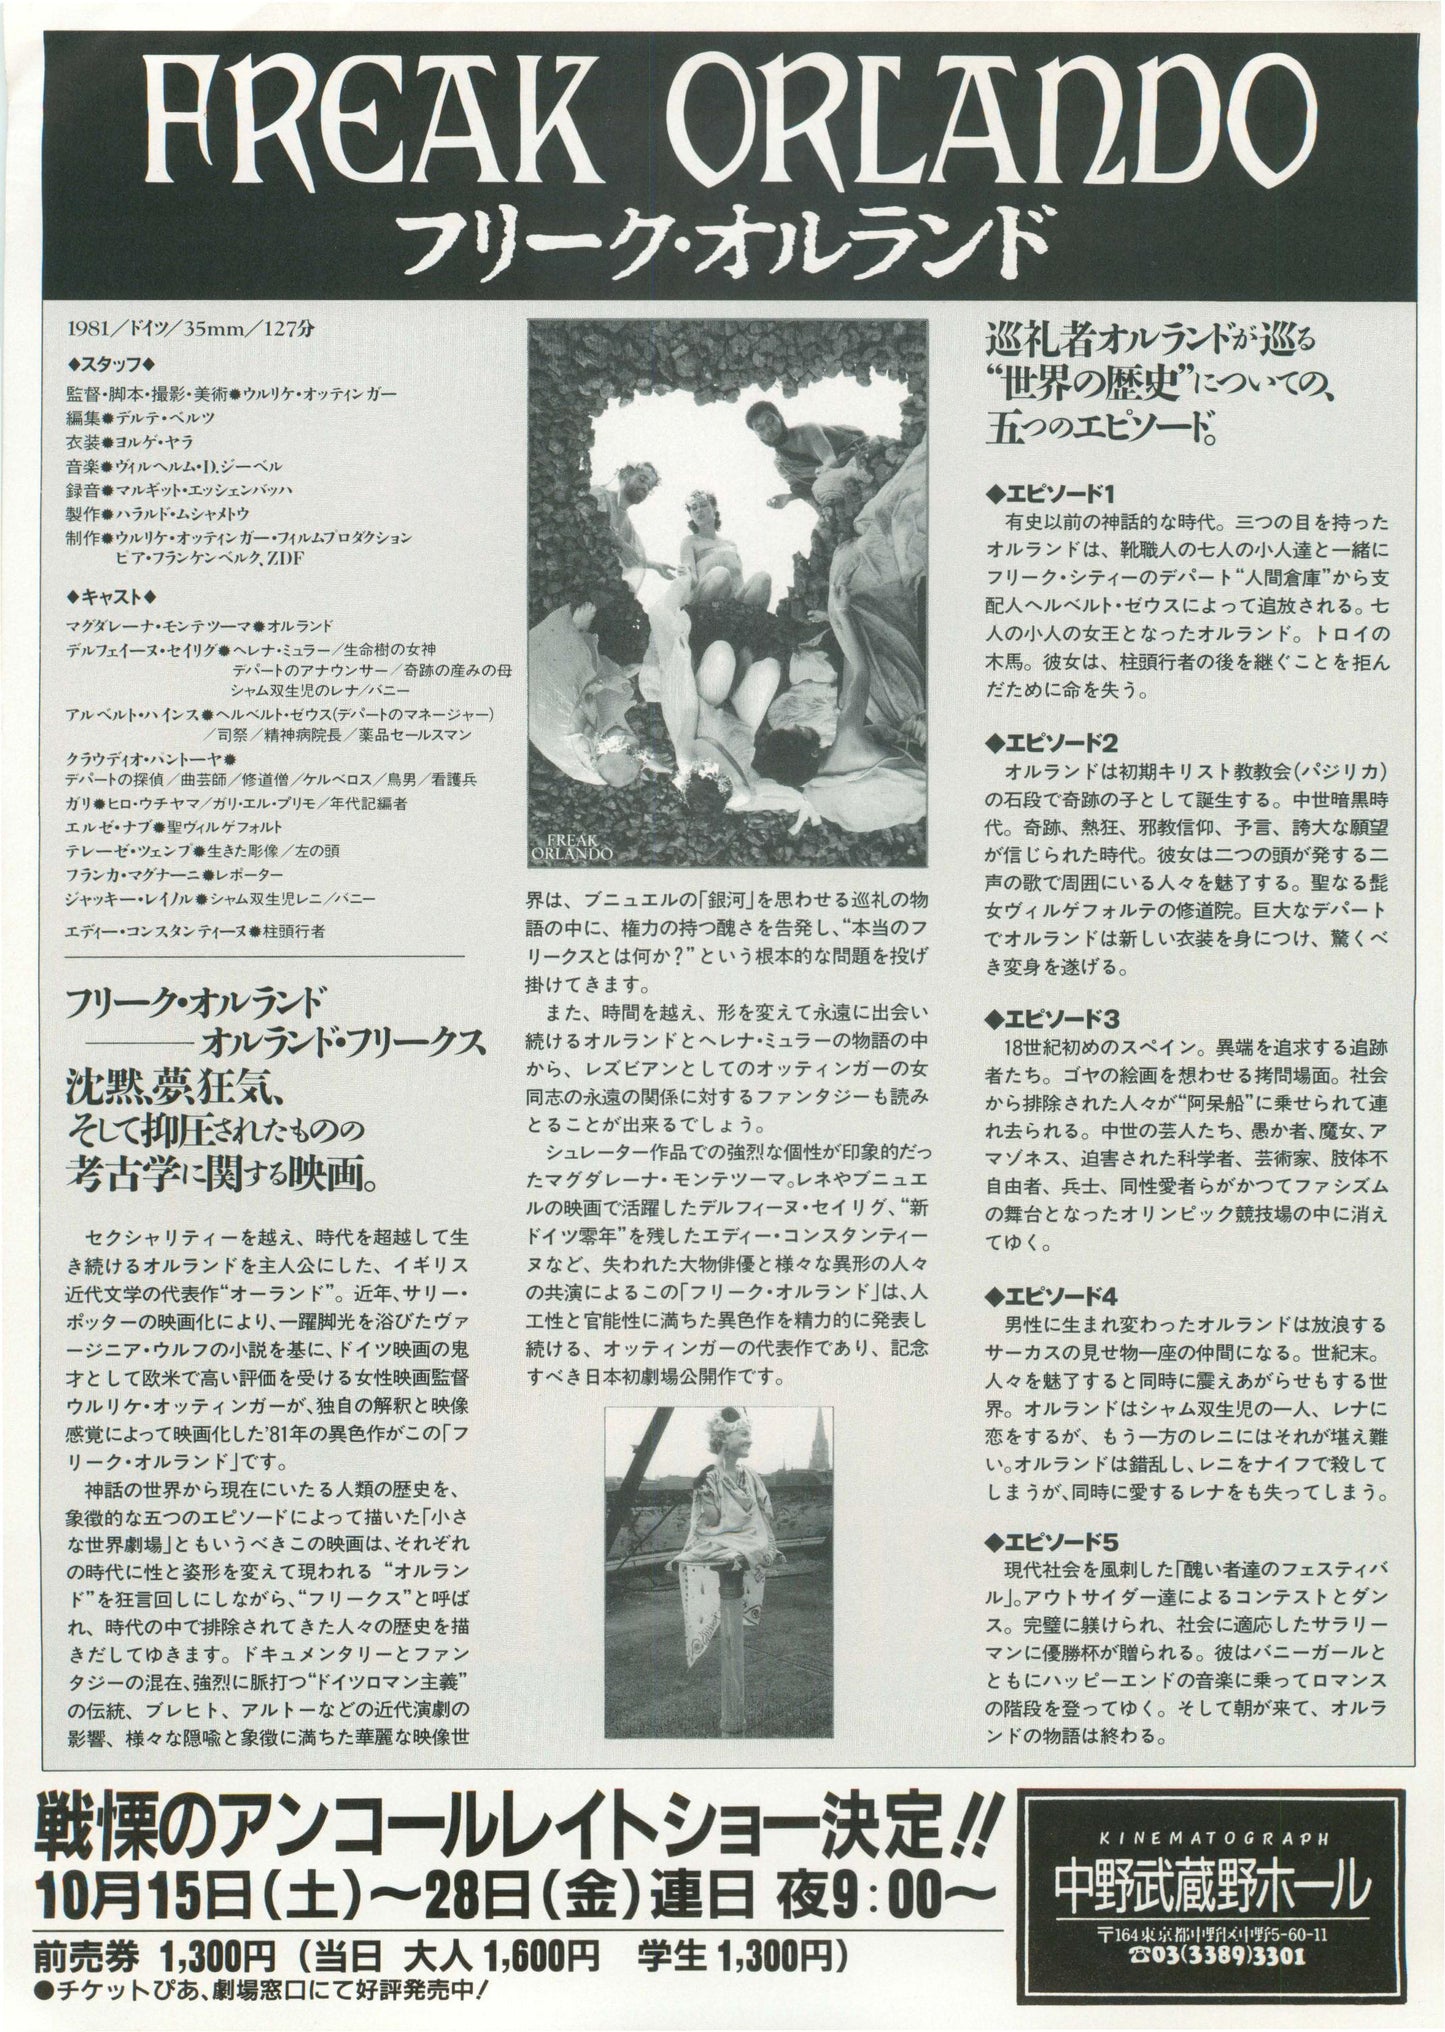 FREAK ORLANDO
フリーク・オルランド
1981／ドイツ／35mm／127分
◆スタッフ◆
監督・脚本・撮影・美術✹ウルリケ・オッティンガー
編集✹デルテ・ベルツ
衣装✹ヨルゲ・ヤラ
音楽✹ヴィルヘルム・D.ジーベル
録音✹マルギット・エッシェンバッハ
製作✹ハラルド・ムシャメトウ
制作✹ウルリケ・オッティンガー・フィルムプロダクション
ピア・フランケンベルク、ZDF
◆キャスト◆
マグダレーナ・モンテツーマ✹オルランド
デルフェイーヌ・セイリグ✹ヘレナ・ミュラー／生命樹の女神
デパートのアナウンサー／奇跡の産みの母
シャム双生児のレナ／バニー
アルベルト・ハインス✹ヘルベルト・ゼウス(デパートのマネージャー)
／司祭／精神病院長／薬品セールスマン
クラウディオ・パントーヤ✹
デパートの探偵／曲芸師／修道僧／ケルベロス／鳥男／看護兵
ガリ✹ヒロ・ウチヤマ／ガリ・エル・プリモ／年代記編者
エルゼ・ナブ✹聖ヴィルゲフォルト
テレーゼ・ツェンプ✹生きた彫像／左の頭
フランカ・マグナーニ✹レポーター
ジャッキー・レイノル✹シャム双生児レニ／バニー
エディー・コンスタンティーヌ✹柱頭行者
フリーク・オルランド
――オルランド・フリークス
沈黙、夢、狂気、
そして抑圧されたものの
考古学に関する映画。
セクシャリティーを越え、時代を超越して生
き続けるオルランドを主人公にした、イギリス
近代文学の代表作“オーランド”。近年、サリー・
ポッターの映画化により、一躍脚光を浴びたヴァ
ージニア・ウルフの小説を基に、ドイツ映画の鬼
才として欧米で高い評価を受ける女性映画監督
ウルリケ・オッティンガーが、独自の解釈と映像
感覚によって映画化した'81年の異色作がこの「フ
リーク・オルランド」です。
神話の世界から現在にいたる人類の歴史を、
象徴的な五つのエピソードによって描いた「小さ
な世界劇場」ともいうべきこの映画は、それぞれ
の時代に性と姿形を変えて現われる “オルラン
ド”を狂言回しにしながら、“フリークス”と呼ば
れ、時代の中で排除されてきた人々の歴史を描
きだしてゆきます。ドキュメンタリーとファン
タジーの混在、強烈に脈打つ“ドイツロマン主義”
の伝統、ブレヒト、アルトーなどの近代演劇の
影響、様々な隠喩と象徴に満ちた華麗な映像世
FREAK
ORLANDO
界は、ブニュエルの「銀河」を思わせる巡礼の物
語の中に、権力の持つ醜さを告発し、“本当のフ
リークスとは何か？”という根本的な問題を投げ
掛けてきます。
また、時間を越え、形を変えて永遠に出会い
続けるオルランドとヘレナ・ミュラーの物語の中
から、レズビアンとしてのオッティンガーの女
同志の永遠の関係に対するファンタジーも読み
とることが出来るでしょう。
シュレーター作品での強烈な個性が印象的だっ
たマグダレーナ・モンテツーマ。レネやブニュエ
ルの映画で活躍したデルフィーヌ・セイリグ、“新
ドイツ零年”を残したエディー・コンスタンティー
ヌなど、失われた大物俳優と様々な異形の人々
の共演によるこの「フリーク・オルランド」は、人
工性と官能性に満ちた異色作を精力的に発表し
続ける、オッティンガーの代表作であり、記念
すべき日本初劇場公開作です。
巡礼者オルランドが巡る
“世界の歴史”についての、
五つのエピソード。
◆エピソード1
有史以前の神話的な時代。三つの目を持った
オルランドは、靴職人の七人の小人達と一緒に
フリーク・シティーのデパート“人間倉庫”から支
配人ヘルベルト・ゼウスによって追放される。七
人の小人の女王となったオルランド。トロイの
木馬。彼女は、柱頭行者の後を継ぐことを拒ん
だために命を失う。
◆エピソード2
オルランドは初期キリスト教教会(バジリカ)
の石段で奇跡の子として誕生する。中世暗黒時
代。奇跡、熱狂、邪教信仰、予言、誇大な願望
が信じられた時代。彼女は二つの頭が発する二
声の歌で周囲にいる人々を魅了する。聖なる髭
女ヴィルゲフォルテの修道院。巨大なデパート
でオルランドは新しい衣装を身につけ、驚くべ
き変身を遂げる。
◆エピソード3
18世紀初めのスペイン。異端を追求する追跡
者たち。ゴヤの絵画を想わせる拷問場面。社会
から排除された人々が“阿呆船”に乗せられて連
れ去られる。中世の芸人たち、愚か者、魔女、ア
マゾネス、迫害された科学者、芸術家、肢体不
自由者、兵士、同性愛者らがかつてファシズム
の舞台となったオリンピック競技場の中に消え
てゆく。
◆エピソード4
男性に生まれ変わったオルランドは放浪する
サーカスの見せ物一座の仲間になる。世紀末。
人々を魅了すると同時に震えあがらせもする世
界。オルランドはシャム双生児の一人、レナに
恋をするが、もう一方のレニにはそれが堪え難
い。オルランドは錯乱し、レニをナイフで殺して
しまうが、同時に愛するレナをも失ってしまう。
◆エピソード5
現代社会を風刺した「醜い者達のフェスティバ
ル」。アウトサイダー達によるコンテストとダン
ス。完璧に躾けられ、社会に適応したサラリー
マンに優勝杯が贈られる。彼はバニーガールと
ともにハッピーエンドの音楽に乗ってロマンス
の階段を登ってゆく。そして朝が来て、オルラ
ンドの物語は終わる。
戦慄のアンコールレイトショー決定!!
10月15日(土)～28日(金)連日 夜9:00～
前売券 1,300円 (当日 大人1,600円 学生1,300円)
●チケットぴあ、劇場窓口にて好評発売中!
KINEMATOGRAPH
中野武蔵野ホール
〒164東京都中野区中野5-60-11
☎03(3389)3301